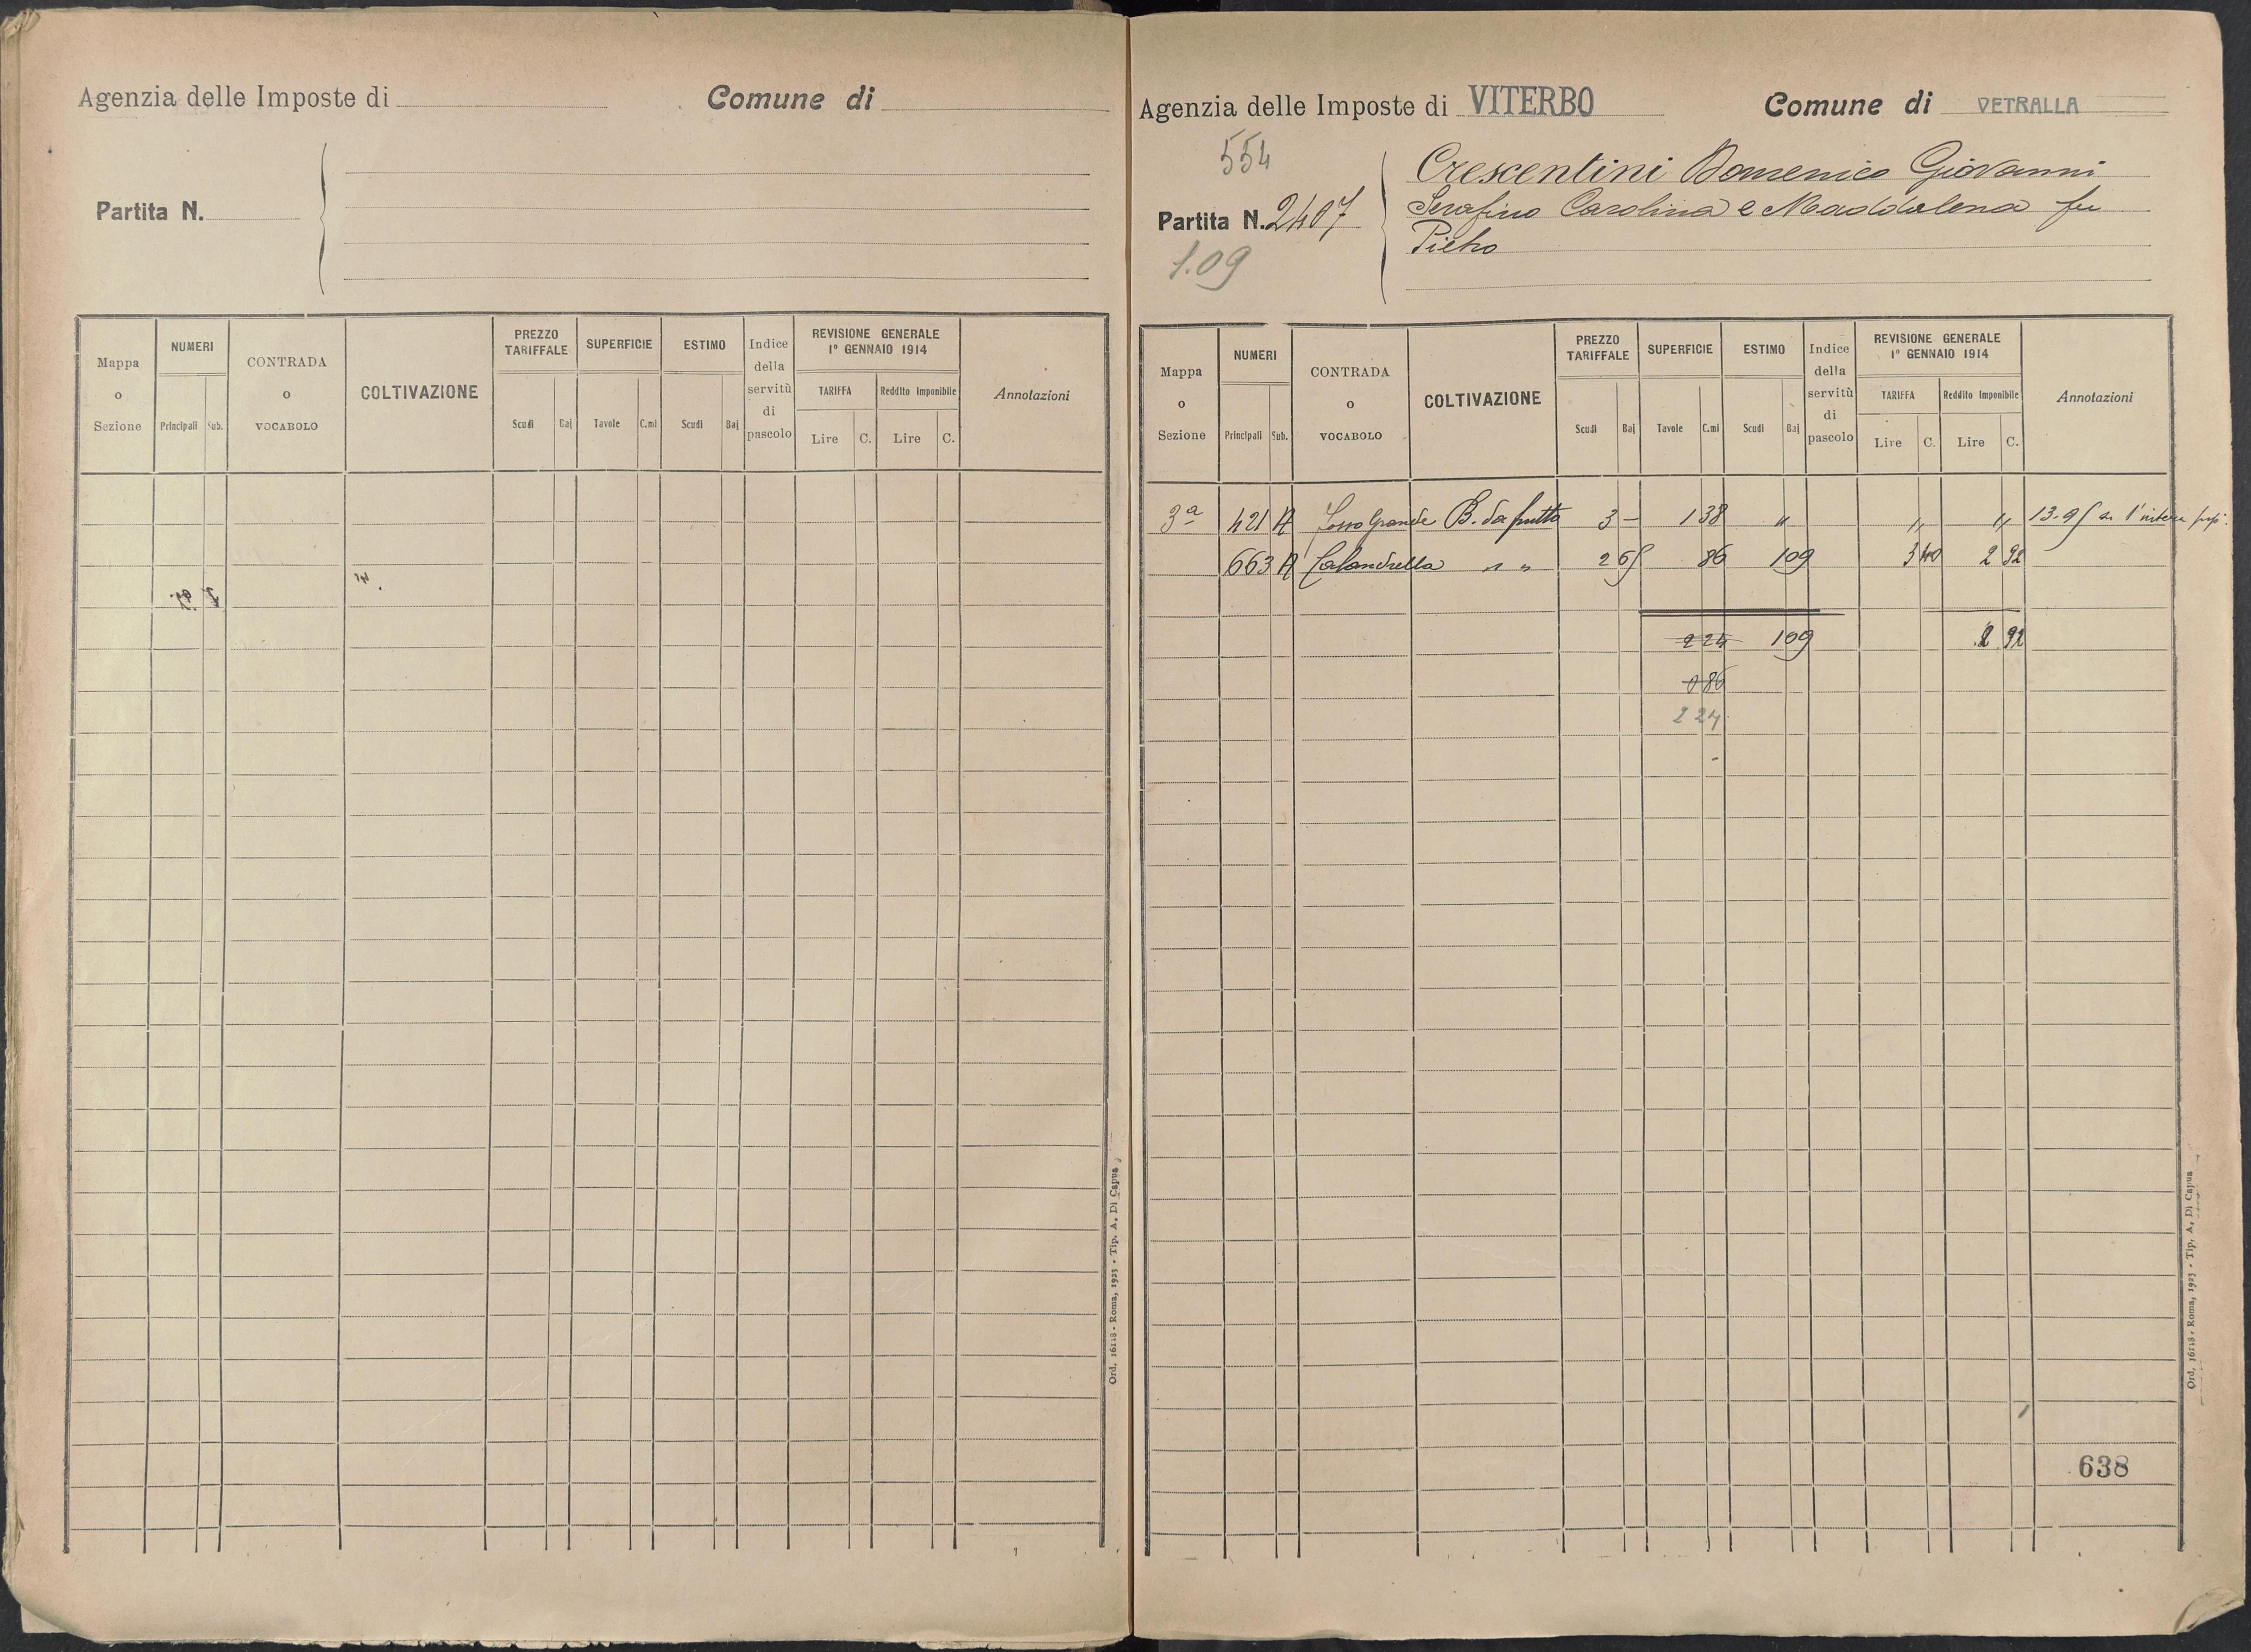 Agenzia delle Imposte di
Comune di
Partita N.
Mappa o Sezione
NUMERI
Principali Sub.
CONTRADA o VOCABOLO
COLTIVAZIONE
PREZZO TARIFFALE
Scudi Baj
SUPERFICIE
Tavole C.mi
ESTIMO
Scudi Baj
Indice della servitù di pascolo
REVISIONE GENERALE
1° GENNAIO 1914
TARIFFA Reddito Imponibile
Lire C. Lire C.
Annotazioni
Ord. 16118 - Roma, 1923 - Tip. A. Di Capua
1
Agenzia delle Imposte di VITERBO
Comune di VETRALLA
554
Partita N. 2407
1.09
Crescentini Domenico Giovanni
Serafino Carolina e Maddalena fu
Pietro
Mappa o Sezione
NUMERI
Principali Sub.
CONTRADA o VOCABOLO
COLTIVAZIONE
PREZZO TARIFFALE
Scudi Baj
SUPERFICIE
Tavole C.mi
ESTIMO
Scudi Baj
Indice della servitù di pascolo
REVISIONE GENERALE
1° GENNAIO 1914
TARIFFA Reddito Imponibile
Lire C. Lire C.
Annotazioni
3a 421 A Grande B. da frutto 3 — 1 38 " " " 13.95
663 A Calandrella " " 2 65 86 1 09 3 40 2 92
2 24 1 09 2 92
0 86
2 24
638
Ord. 16118 - Roma, 1923 - Tip. A. Di Capua